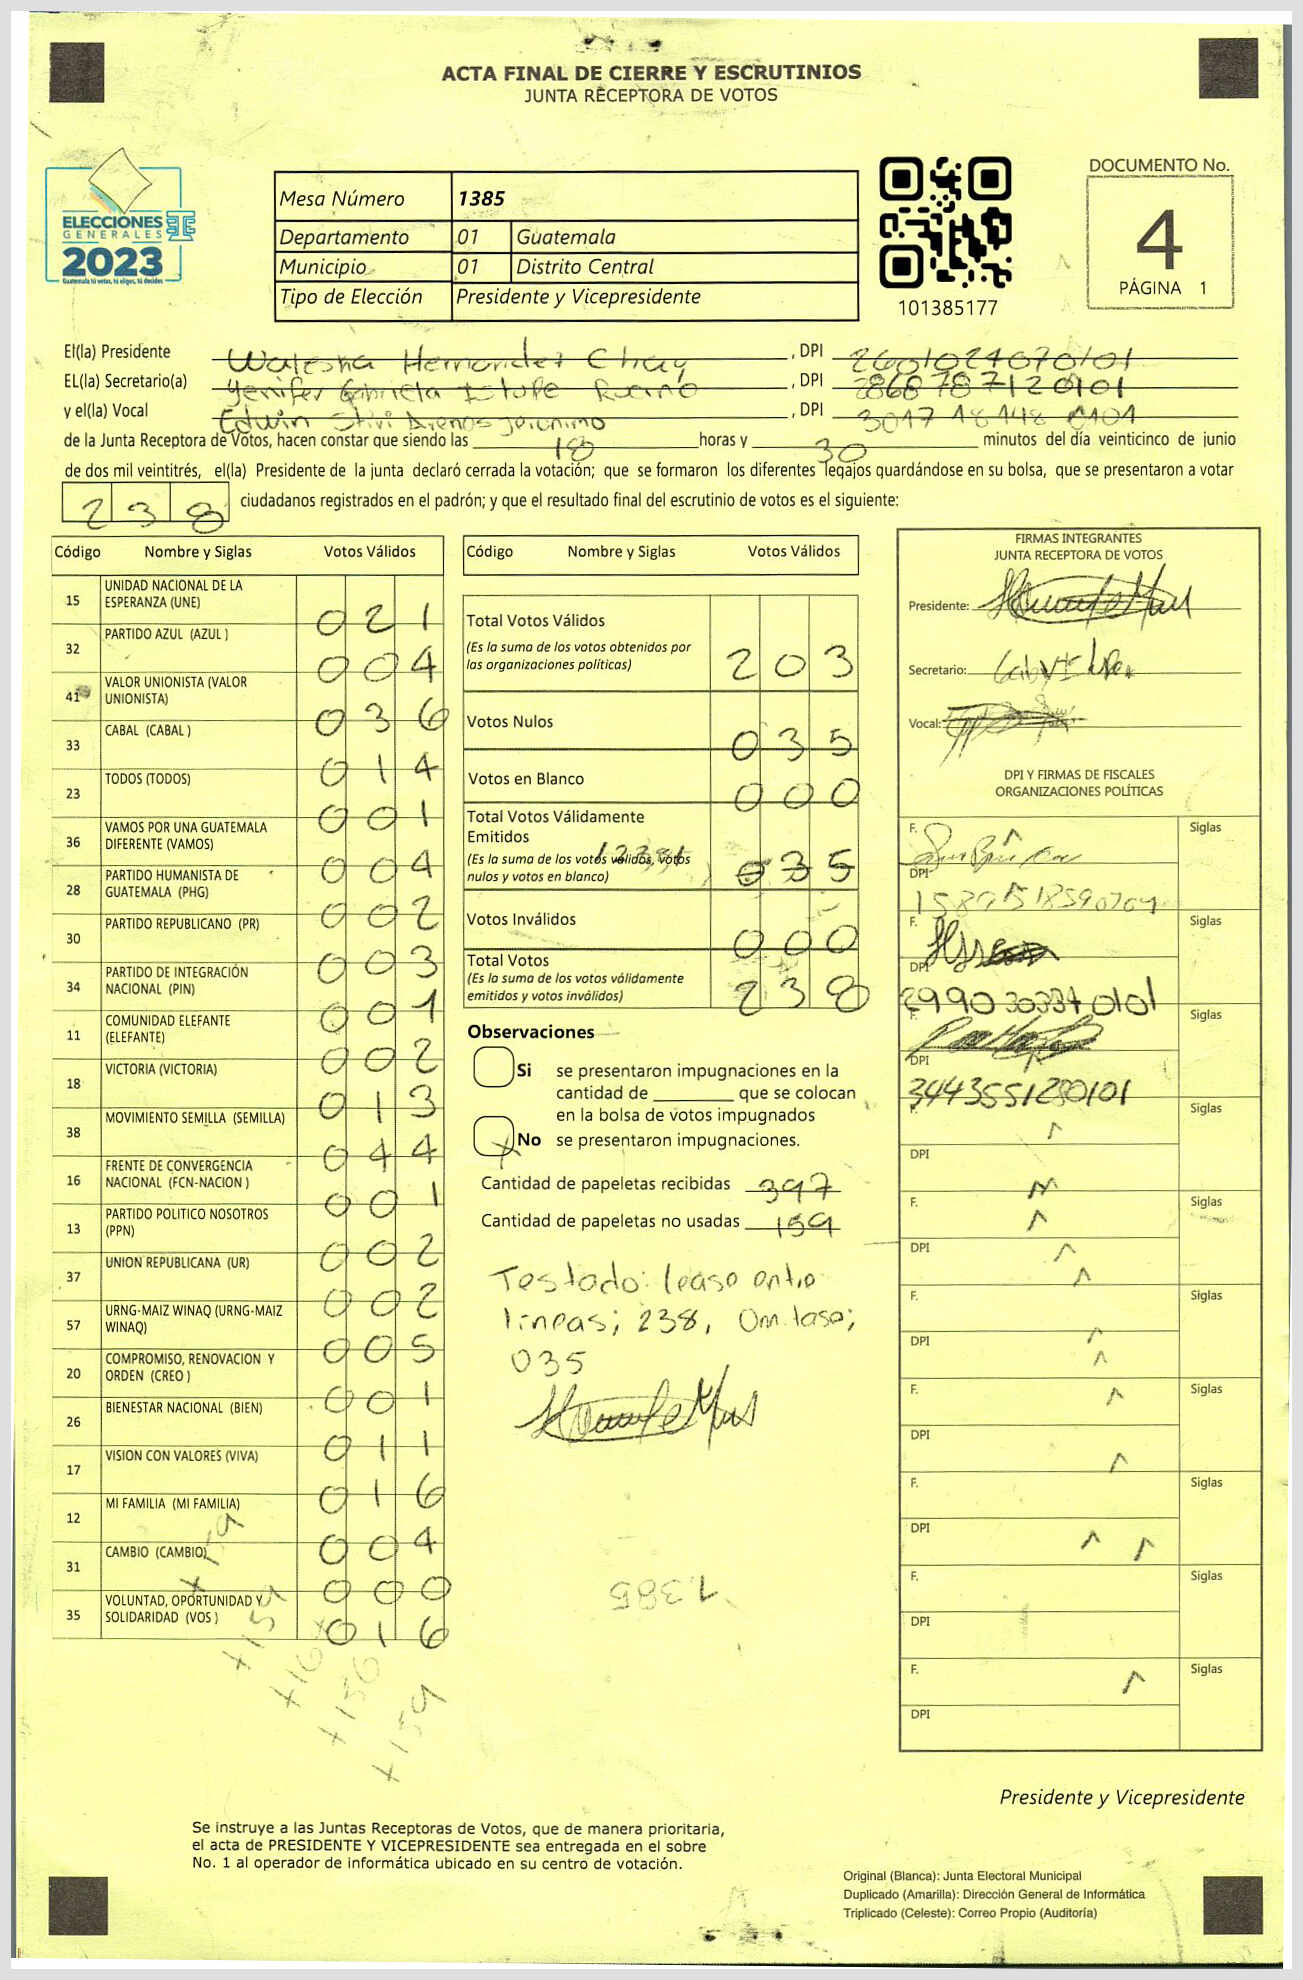 ACTA FINAL DE CIERRE Y ESCRUTINIOS
JUNTA RECEPTORA DE VOTOS
ELECCIONES
GENERALES
2023
Guatemala tú votas, tú eliges, tú decides
Mesa Número 1385
Departamento 01 Guatemala
Municipio 01 Distrito Central
Tipo de Elección Presidente y Vicepresidente
101385177
DOCUMENTO No.
4
PÁGINA 1
El(la) Presidente Waleska Hernandez Chay, DPI 2601024070101
EL(la) Secretario(a) Yenifer Gabriela Istupe, DPI 2868787120101
y el(la) Vocal Edwin Stivi Arenas Jeronimo, DPI 3017 18148 0101
de la Junta Receptora de Votos, hacen constar que siendo las 18 horas y 30 minutos del día veinticinco de junio
de dos mil veintitrés, el(la) Presidente de la junta declaró cerrada la votación; que se formaron los diferentes legajos quardándose en su bolsa, que se presentaron a votar
238 ciudadanos registrados en el padrón; y que el resultado final del escrutinio de votos es el siguiente:
Código Nombre y Siglas Votos Válidos
15 UNIDAD NACIONAL DE LA ESPERANZA (UNE) 021
32 PARTIDO AZUL (AZUL ) 004
41 VALOR UNIONISTA (VALOR UNIONISTA) 036
33 CABAL (CABAL ) 014
23 TODOS (TODOS) 001
36 VAMOS POR UNA GUATEMALA DIFERENTE (VAMOS) 004
28 PARTIDO HUMANISTA DE GUATEMALA (PHG) 002
30 PARTIDO REPUBLICANO (PR) 003
34 PARTIDO DE INTEGRACIÓN NACIONAL (PIN) 001
11 COMUNIDAD ELEFANTE (ELEFANTE) 002
18 VICTORIA (VICTORIA) 013
38 MOVIMIENTO SEMILLA (SEMILLA) 044
16 FRENTE DE CONVERGENCIA NACIONAL (FCN-NACION ) 001
13 PARTIDO POLITICO NOSOTROS (PPN) 002
37 UNION REPUBLICANA (UR) 002
57 URNG-MAIZ WINAQ (URNG-MAIZ WINAQ) 005
20 COMPROMISO, RENOVACION Y ORDEN (CREO ) 001
26 BIENESTAR NACIONAL (BIEN) 011
17 VISION CON VALORES (VIVA) 016
12 MI FAMILIA (MI FAMILIA) 004
31 CAMBIO (CAMBIO) 000
35 VOLUNTAD, OPORTUNIDAD Y SOLIDARIDAD (VOS ) 016
+159
+159
+156
+159
Código Nombre y Siglas Votos Válidos
Total Votos Válidos
(Es la suma de los votos obtenidos por
las organizaciones políticas) 203
Votos Nulos 035
Votos en Blanco 000
Total Votos Válidamente
Emitidos
(Es la suma de los votos válidos, votos
nulos y votos en blanco) 035
Votos Inválidos 000
Total Votos
(Es la suma de los votos válidamente
emitidos y votos inválidos) 238
Observaciones
Si se presentaron impugnaciones en la
cantidad de ________ que se colocan
en la bolsa de votos impugnados
X No se presentaron impugnaciones.
Cantidad de papeletas recibidas 397
Cantidad de papeletas no usadas 159
Testado: lease entre
lineas; 238, Omitase;
035
1385
FIRMAS INTEGRANTES
JUNTA RECEPTORA DE VOTOS
Presidente:
Secretario:
Vocal:
DPI Y FIRMAS DE FISCALES
ORGANIZACIONES POLÍTICAS
F. Siglas
DPI 1589518590704
F. Siglas
DPI 2990303340101
F. Siglas
DPI 3443551280101
F. Siglas
DPI
F. Siglas
DPI
F. Siglas
DPI
F. Siglas
DPI
F. Siglas
DPI
F. Siglas
DPI
F. Siglas
DPI
Presidente y Vicepresidente
Se instruye a las Juntas Receptoras de Votos, que de manera prioritaria,
el acta de PRESIDENTE Y VICEPRESIDENTE sea entregada en el sobre
No. 1 al operador de informática ubicado en su centro de votación.
Original (Blanca): Junta Electoral Municipal
Duplicado (Amarilla): Dirección General de Informática
Triplicado (Celeste): Correo Propio (Auditoría)